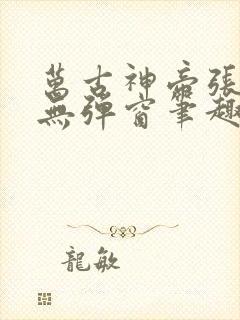 萬古神帝張
無彈窗筆趣
龍敏